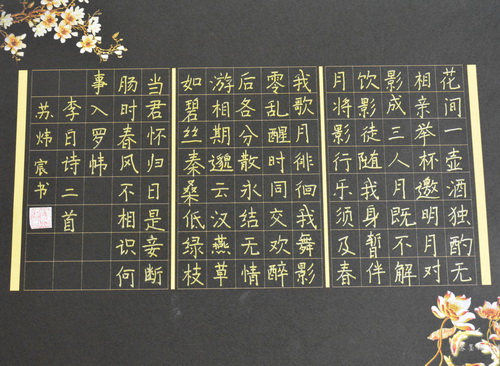 花间一壶酒独酌无
相亲举杯邀明月对
影成三人月既不解
饮影徒随我身暫伴
月将影行乐须及春
我歌月徘徊我舞影
零乱醒时同交欢醉
后各分散永结无情
游相期邈云汉燕草
如碧丝秦桑低绿枝
当君怀归日是妾断
肠时春风不相识何
事入罗帏
李白诗二首
苏炜宸书